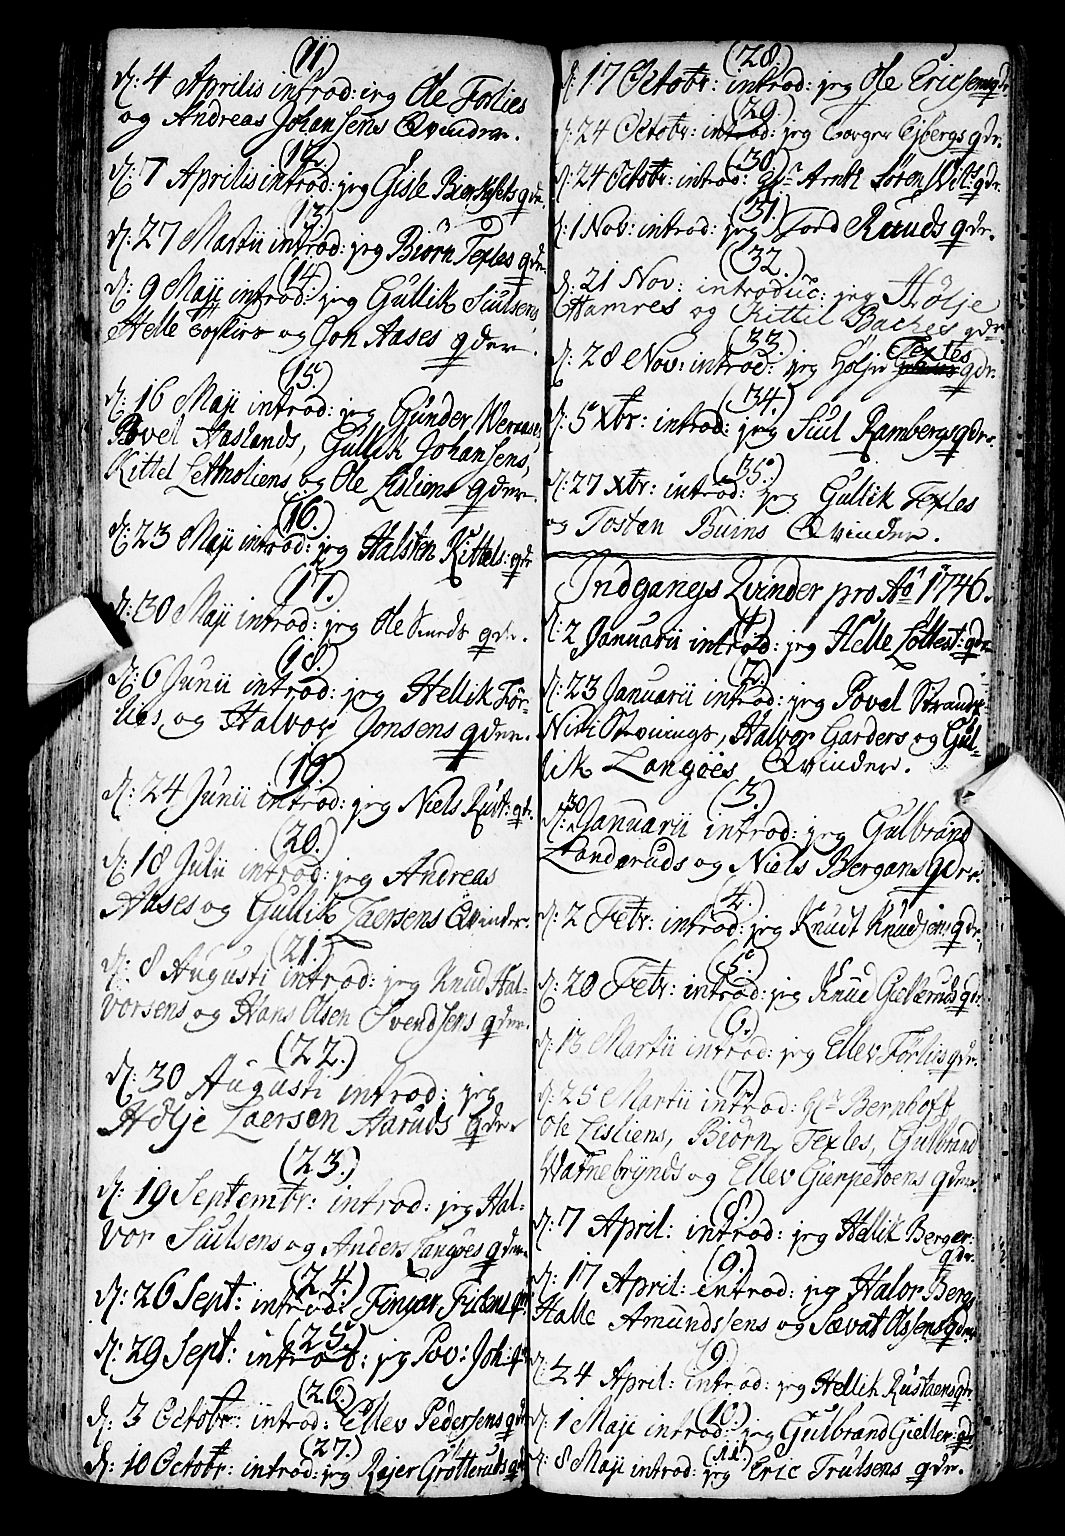 (11)
d: 4 Aprilis introd: jeg Ole Forlies
og Andreas Johansens Qvinder.
(12.)
d: 7 Aprilis introd: jeg Gisle qdr.
(13.)
d: 27 Martii introd: jeg Biörn Texles qdr
(14)
d: 9 Maji introd: jeg Gullik Siulsens,
Helle og Joh Aases qder.
(15.)
d: 16 Maji introd: jeg Gunder
Povel Haslands, Gullik Johansens,
Kittel og Ole Lisliens qder.
(16.)
d: 23 Maji introd: jeg Halsten Kittels: qdr
(17.)
d: 30 Maji introd: jeg Ole qdr.
(18.)
d: 6 Junii introd: jeg Hellik För-
lies, og Halvor Jonsens qder.
(19.)
d: 24 Junii introd: jeg Niels Rust: qdr.
(20.)
d: 18 Julii introd: jeg Andreas
Aases og Gullik Laersens Qvinder.
(21.)
d: 8 Augusti introd: jeg Knud Hal-
vorsens og Hans Olsen Svendsens qder.
(22.)
d: 30 Augusti introd: jeg
Hölje Laersen Aaruds qder
(23.)
d: 19 Septembr: introd: jeg Hal-
vor Siulsens og Anders Langöes qder.
(24.)
d: 26 Sept: introd: qdr
(25.)
d: 29 Sept: introd: jeg Pov: Joh: qdr
(26.)
d: 3 Octobr: introd: Ellev Pedersens qdr
(27.)
d: 10 Octobr: introd: jeg Rejer Grotteruds qdr
(28.)
d: 17 Octobr: introd: jeg Ole Ericsens qdr
(29.)
d: 24 Octobr: introd: jeg Torger qdr.
(30.)
d: 24 Octobr: introd: Hr Arntz Sören qdr.
(31.)
d: 1 Nov: introd: jeg Tord Ruuds qdr.
(32.)
d: 21 Nov: introduc: jeg Hölje
Hamres og Kittel Baches qdr.
(33.)
d: 28 Nov: introd: jeg Hölje Texles qdr.
(34.)
d: 5 Xbr: introd: jeg Siul Rambergs qdr.
(35.)
d: 27 Xbr: introd: jeg Gullik Texles
og Tosten Buins Qvinder.
Indgangs Qvinder pro Ao 1746.
(1.)
d: 2 Januarii introd: jeg Helle qdr
(2.)
d: 23 Januarii introd: jeg Povel Strands
Niri Halvor Garders og Gul-
lik Langöes Qvinder.
(3.)
d: 30 Januarii introd: jeg Gulbrand
Landeruds og Niels Bergans qder.
(4.)
d: 2 Febr: introd: jeg Knudt Knudsens qdr.
(5.)
d: 20 Febr: introd: jeg Knud qdr.
(6.)
d: 13 Martii introd: jeg Ellev Förlis qdr.
(7.)
d: 25 Martii introd: Hr Bernhoft
Ole Lisliens, Biörn Texles, Gulbrand
og Ellev qder.
(8.)
d: 7 April: introd: jeg Hellik Berger:
qdr.
(9.)
d: 17 April: introd: jeg Halvor Bergs
Halle Amundssens og Sævat Olssens qder
(9)
d: 24 April: introd: jeg Hellik Rustaens qdr
(10.)
d: 1 Maji introd: jeg Gulbrand Gieller: qdr
(11)
d: 8 Maji introd: jeg Eric Trulsens qdr.